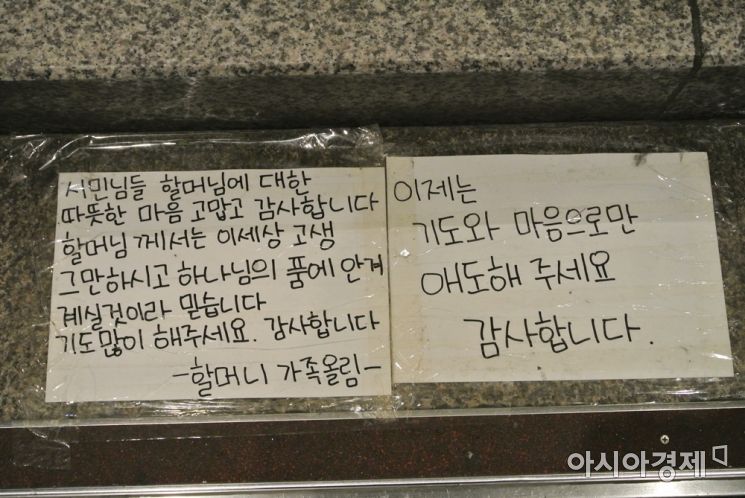 시민님들 할머님에 대한
따뜻한 마음 고맙고 감사합니다
할머님 께서는 이세상 고생
그만하시고 하나님의 품에 안겨
계실것이라 믿습니다
기도많이 해주세요. 감사합니다
-할머니 가족올림-
이제는
기도와 마음으로만
애도해 주세요
감사합니다.
아시아경제